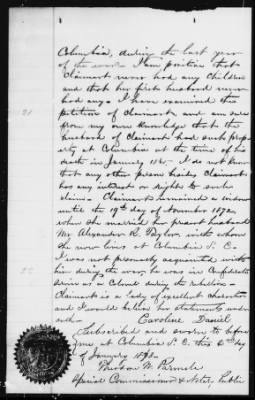 Columbia, during the last year
of the war. I am positive that
claimant never had any children
and that her first husband never
had any. I have examined the
petition of claimant and am sure
from my own knowledge that the
husband of claimant had such prop-
erty at Columbia at the time of his
death in January 1865. I do not know
that any other person besides claimant
has any interest or rights to such
claims. Claimant remained a widow
until the 19th day of November 1870
when she married her present husband
Mr Alexander R. Taylor, with whom
she now lives at Columbia S. C.
I was not personally acquainted with
him during the war, he was in Confederate
service as a Colonel during the rebellion.
Claimant is a lady of excellent character
and I would believe her statements under
oath. Caroline Daniel
Subscribed and sworn to before
me at Columbia S. C. this day
of January
M. Parmele
Special Commissioner & Notary Public